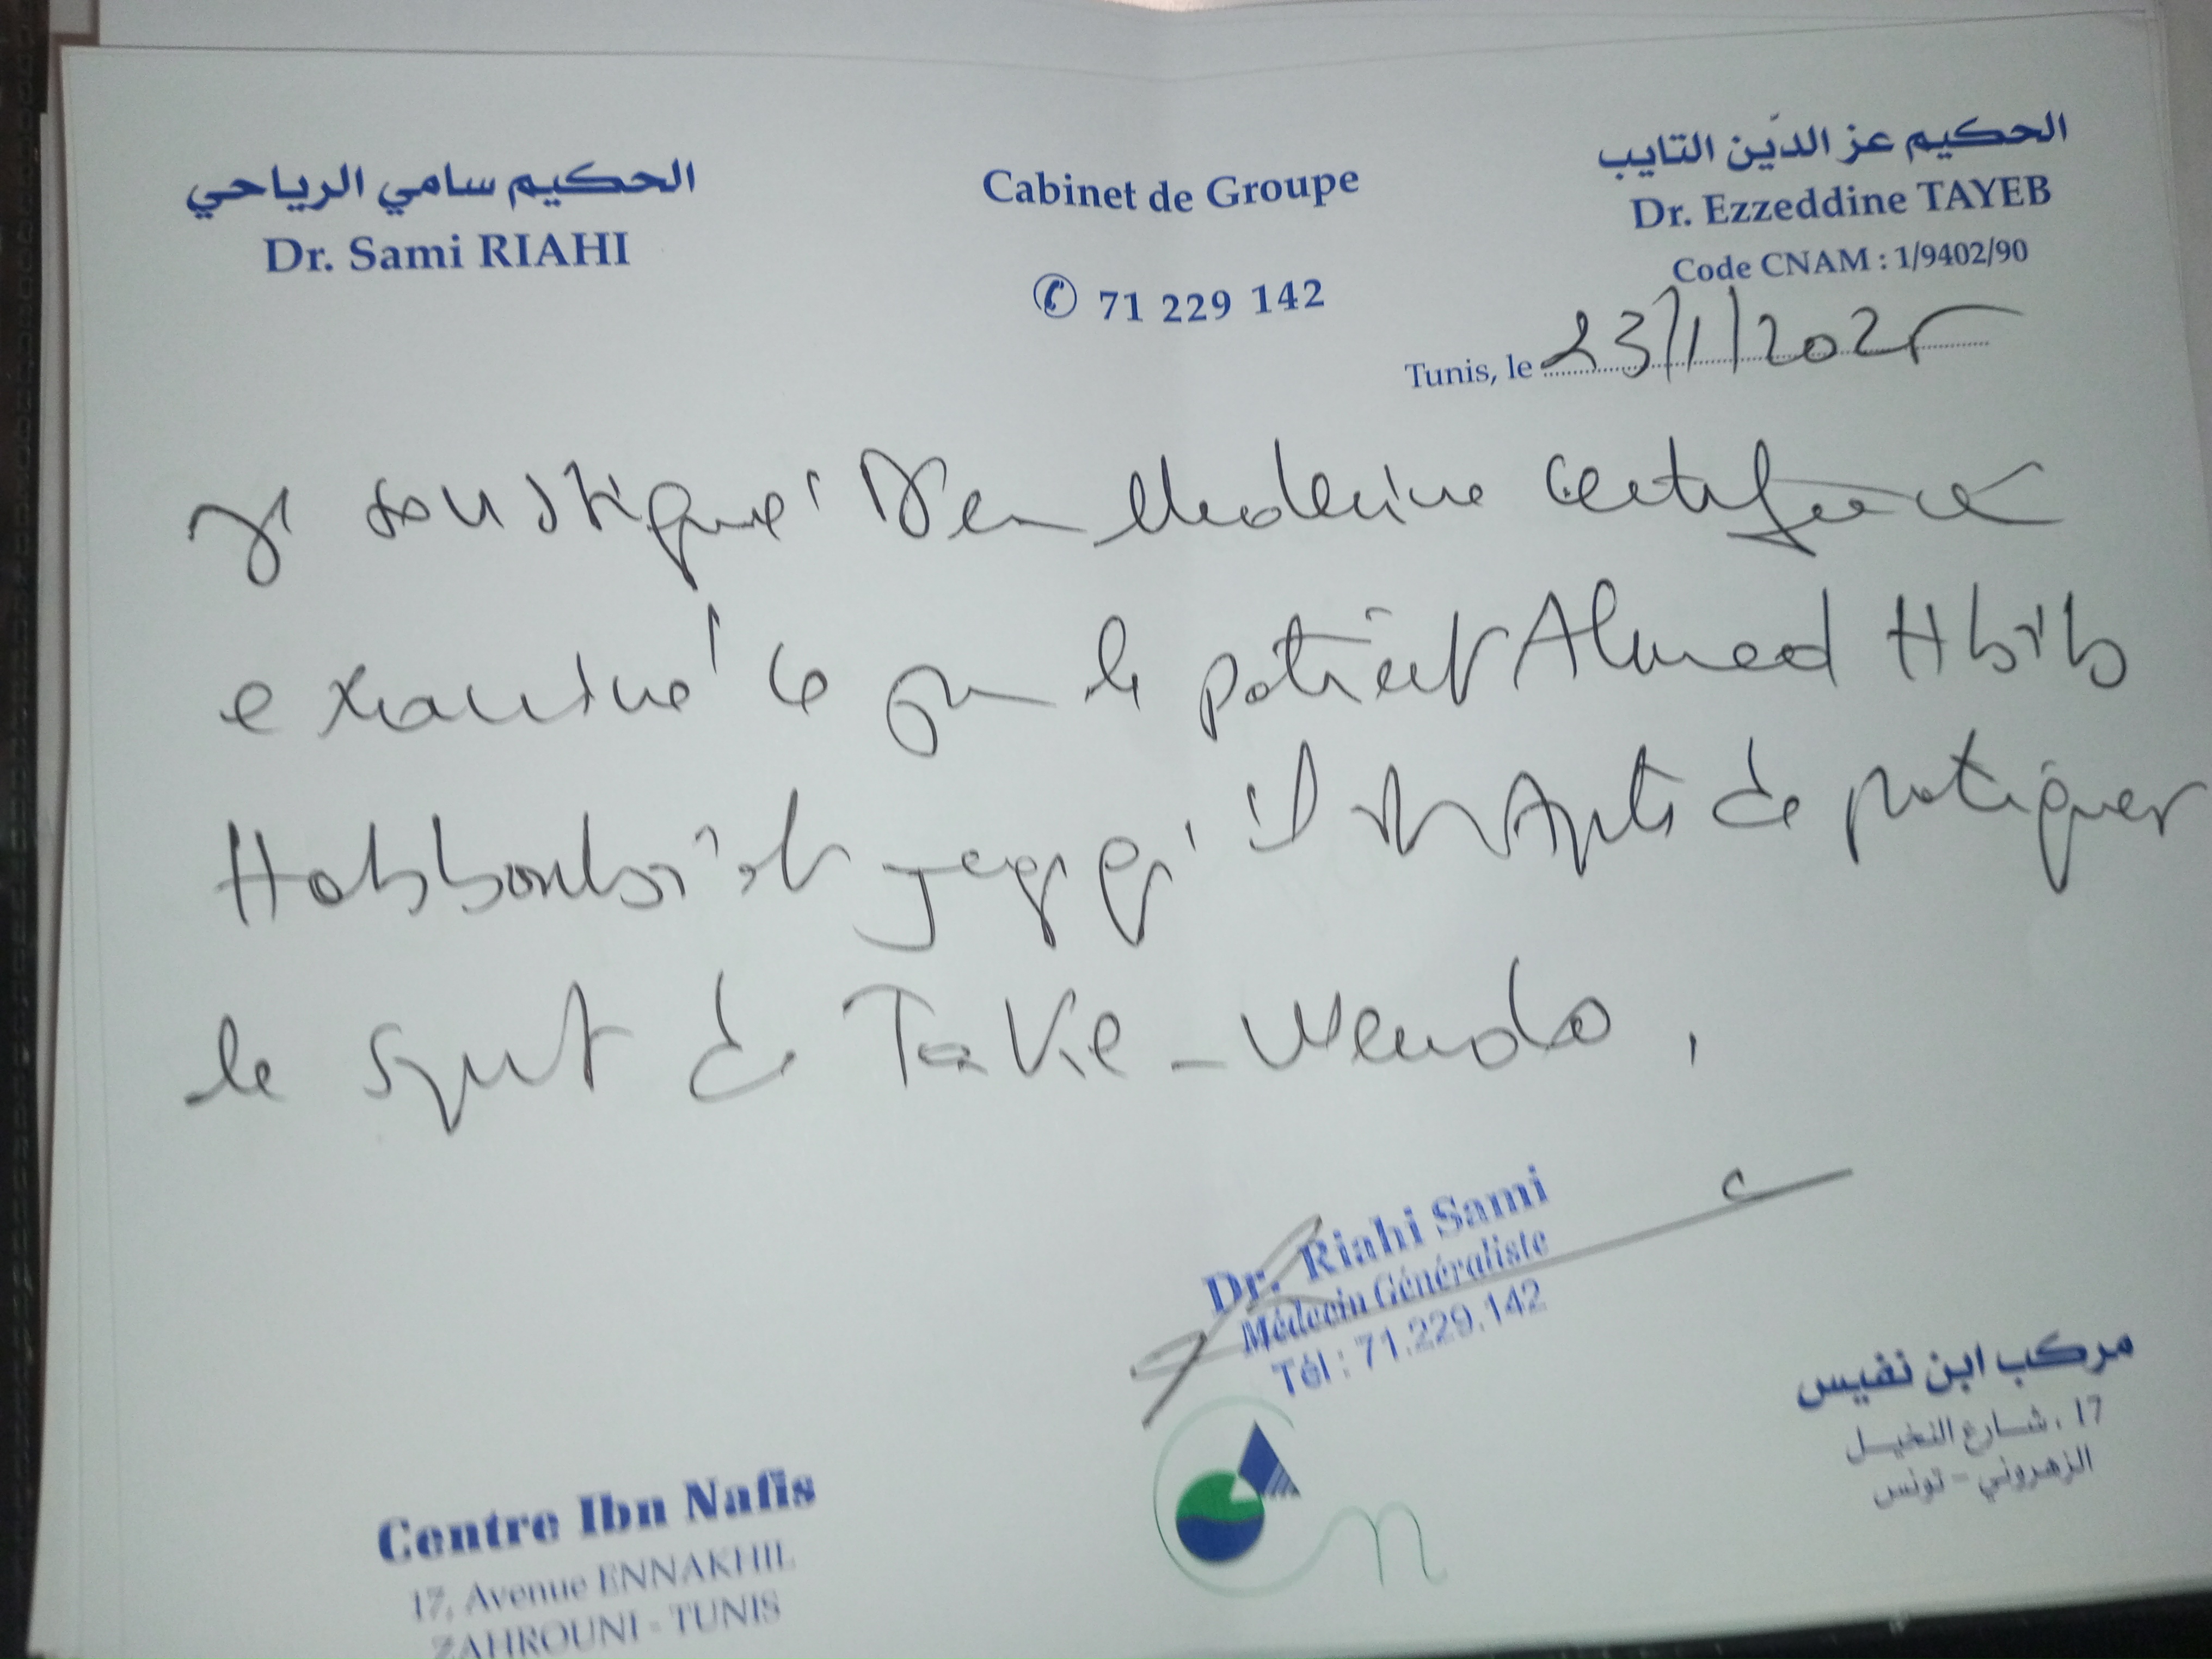 الحكيم سامي الرياحي
Dr. Sami RIAHI
Cabinet de Groupe
71 229 142
الحكيم عز الدّين التايب
Dr. Ezzeddine TAYEB
Code CNAM : 1/9402/90
Tunis, le 23/1/2025
soussigné Dr en Médecine certifie
examiné ce le patient Ahmed Hbib
il est Apte de pratiquer
le sport de Takie-Wendo.
Dr. Riahi Sami
Médecin Généraliste
Tél : 71.229.142
Centre Ibn Nafis
17, Avenue ENNAKHIL
ZAHROUNI - TUNIS
مركب ابن نفيس
17 ، شارع النخيل
الزهروني - تونس